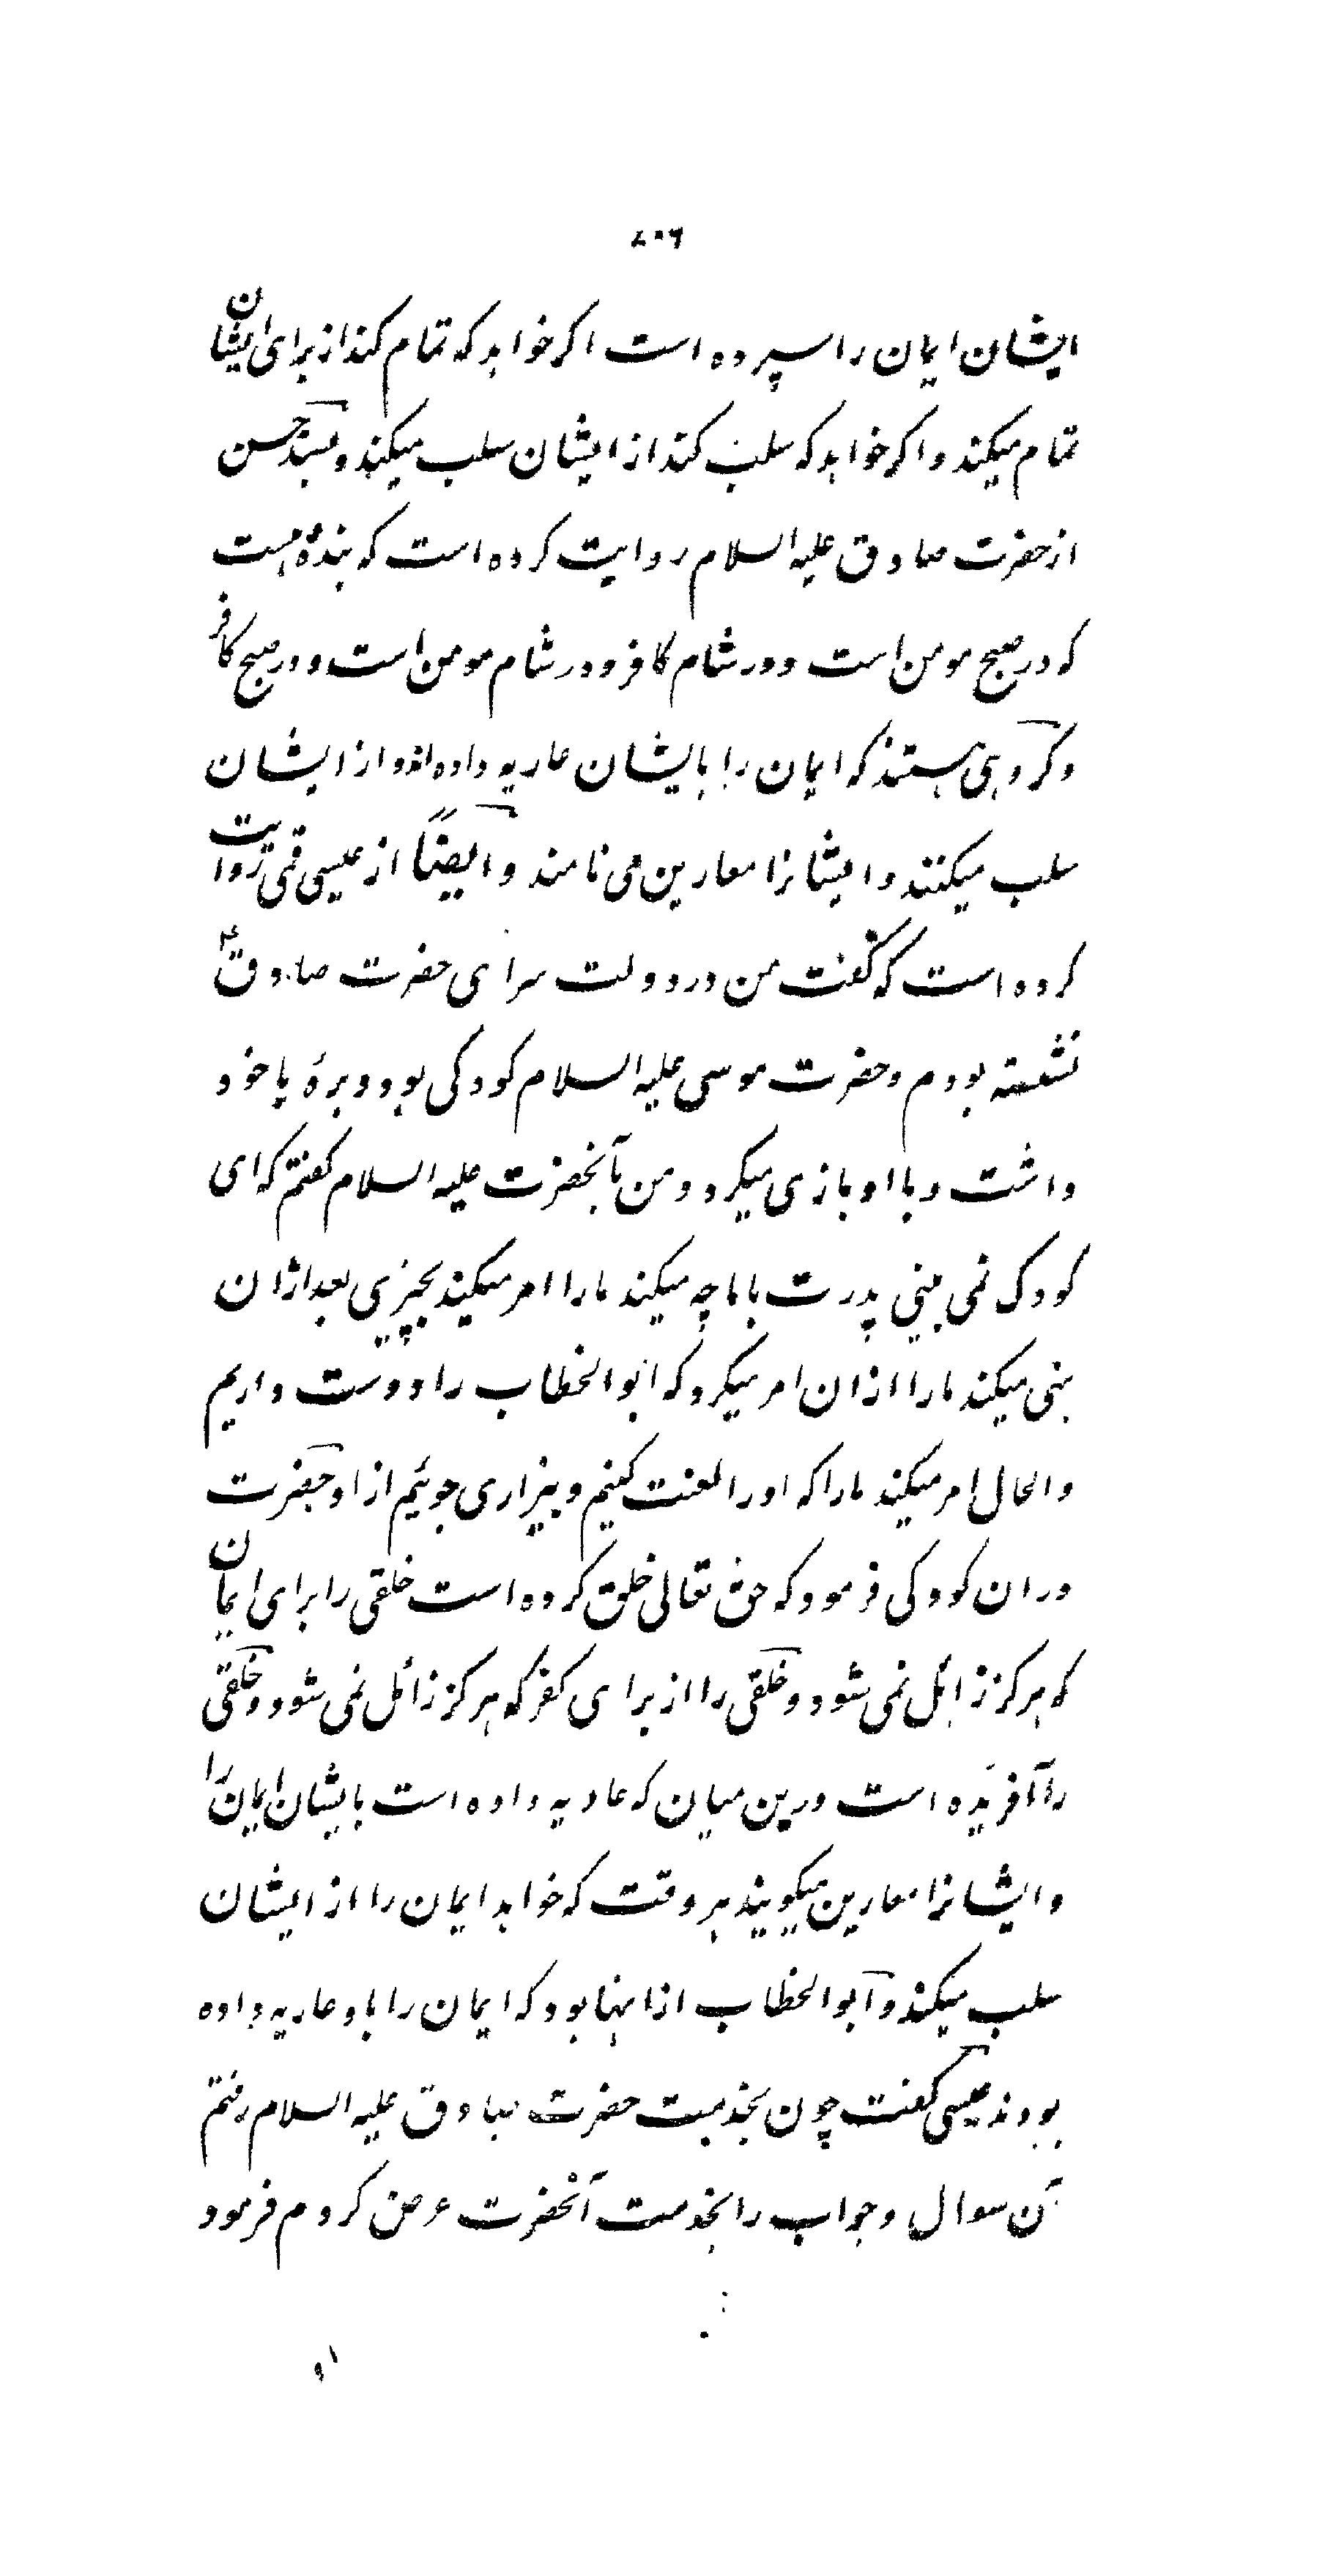 ۸۰۶
ایشان ایمان را سپرده است اکر خواهد که تمام کند از برای ایشان
تمام میکند و اکر خواهد که سلب کند از ایشان سلب میکند و بسند حسن
از حضرت صادق علیه السلام روایت کرده است که بندۀ هست
که در صبح مومن است و در شام کافر و در شام مومن است و در صبح کافر
و کروهی هستند که ایمان را بایشان عاریه داده اند و از ایشان
سلب میکنند و ایشانرا معارین می نامند و ایضاً از عیسی قمی روایت
کرده است که گفت من در دولت سرای حضرت صادق ع
نشسته بودم و حضرت موسی علیه السلام کودکی بود و برۀ با خود
داشت و با او بازی میکرد و من بآنحضرت علیه السلام کفتم که ای
کودک نمی بینی پدرت با ما چه میکند ما را امر میکند بچیزی بعد ازان
نهی میکند ما را ازان امر میکرد که ابو الخطاب را دوست داریم
والحال امر میکند ما را که او را لعنت کنیم و بیزاری جوئیم از او حضرت
دران کودکی فرمود که حق تعالی خلق کرده است خلقی را برای ایمان
که هرکز زائل نمی شود و خلقی را از برای کفر که هرکز زائل نمی شود و خلقی
را آفریده است درین میان که عاریه داده است بایشان ایمان را
و ایشانرا معارین میکویند هر وقت که خواهد ایمان را از ایشان
سلب میکند و ابو الخطاب ازاینها بود که ایمان را باو عاریه داده
بودند عیسی کفت چون بخدمت حضرت صادق علیه السلام رفتم
آن سوال و جواب را بخدمت آنحضرت عرض کردم فرمود